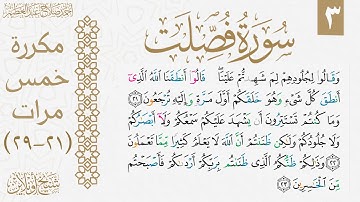 ٣
سُورَةُ فُصِّلَت
وَقَالُوا۟ لِجُلُودِهِمْ لِمَ شَهِدتُّمْ عَلَيْنَا ۖ قَالُوٓا۟ أَنطَقَنَا ٱللَّهُ ٱلَّذِىٓ
أَنطَقَ كُلَّ شَىْءٍ وَهُوَ خَلَقَكُمْ أَوَّلَ مَرَّةٍ وَإِلَيْهِ تُرْجَعُونَ ٢١
وَمَا كُنتُمْ تَسْتَتِرُونَ أَن يَشْهَدَ عَلَيْكُمْ سَمْعُكُمْ وَلَآ أَبْصَٰرُكُمْ
وَلَا جُلُودُكُمْ وَلَٰكِن ظَنَنتُمْ أَنَّ ٱللَّهَ لَا يَعْلَمُ كَثِيرًا مِّمَّا تَعْمَلُونَ
٢٢ وَذَٰلِكُمْ ظَنُّكُمُ ٱلَّذِى ظَنَنتُم بِرَبِّكُمْ أَرْدَىٰكُمْ فَأَصْبَحْتُم
مِّنَ ٱلْخَٰسِرِينَ ٢٣
مكررة
خمس
مرات
(٢١-٢٩)